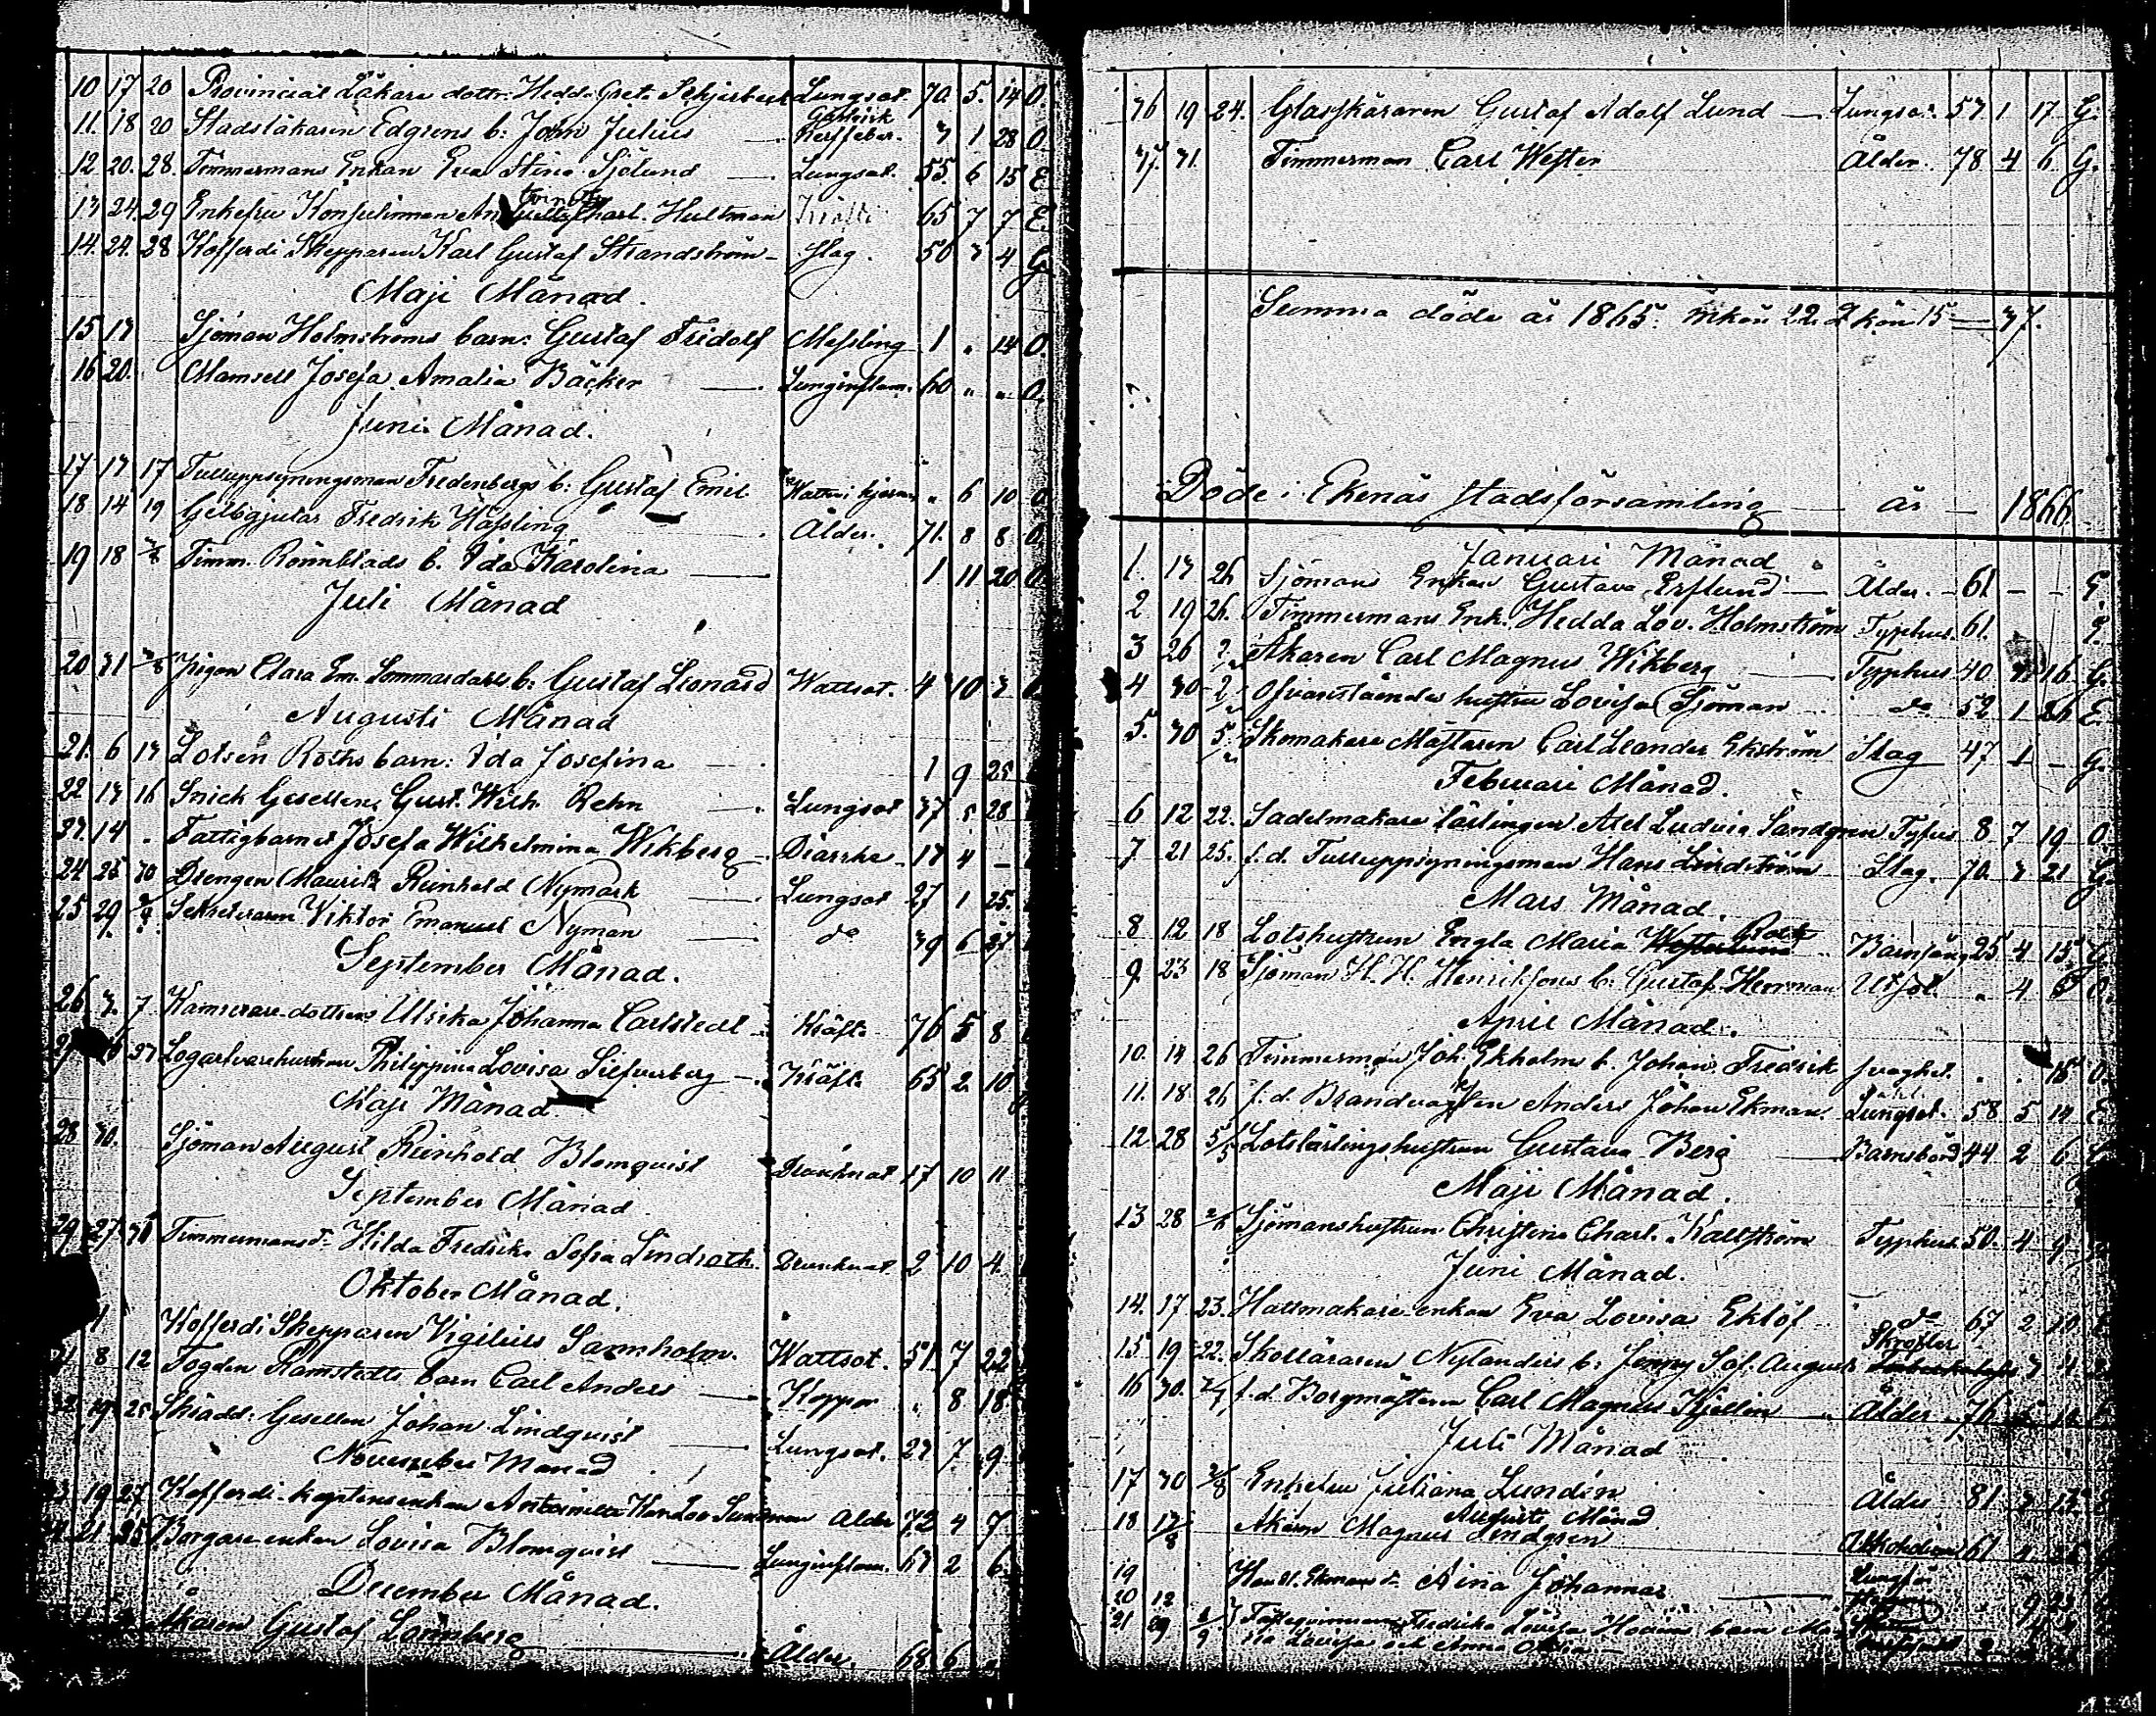 10 17 20 Provincial Läkare dottr. Hedda Greta Lungsot. 70. 5. 14 O.
11. 18 20 Stadsläkaren Edgrens b: John Julius Gastrisk
Nerffeber. 3 1 28 O
12. 20. 28. Timmermans Enkan Eva Stina Sjölund Lungsot. 55. 6 15 E
13 24. 29 Enkefru Konsulinnan Charl. Hultman Kräfta 65 7 7 E.
14. 24. 28 Kofferdi Skepparen Karl Gustaf Strandström Slag. 50 3 4 G
Maji Månad.
15 13 Sjöman Holmströms barn: Gustaf Fridolf Messling 1 " 14 O.
16 20. Mamsell Josefa Amalia Bäcker Lunginflam. 60 " " O.
Juni Månad.
17 13 17 Tulluppsyningsman Fredenbergs b: Gustaf Emil Watten i hjernan " 6 10 O
18 14 19 Gelbgjutar Fredrik Hässling Ålder. 71. 8 8 O.
19 18 Timm. Rönnblads b. Ida Karolina 1. 11 20 O.
Juli Månad
20 31 Pigan Clara Em. b: Gustaf Leonard Wattsot. 4 10 3 O.
Augusti Månad
21. 6 13 Lotsen Roths barn: Ida Josefina 1 9 25
22. 13 16 Snick Gesellen Gust. Wilh. Rehn Lungsot 37 5 28
23. 14 " Fattigbarnet Josefa Wilhelmina Wikberg Diarrhe 13 4 -
24 25 30 Drengen Maurits Reinhold Nymark Lungsot 27 1 25.
25 29. Sekreteraren Viktor Emanuel Nyman do 39 6 27
September Månad.
26 3. 7 Kamrerare dottren Ulrika Johanna Carlstedt Kräfta 76 5 8
Philippina Lovisa Silfverberg Kräfta 65 2 10
Maji Månad
28 30. Sjöman August Reinhold Blomqvist Drunknat 17 10 11
September Månad
29 27 Timmermans d. Hilda Fredrika Sofia Lindroth Drunknat 2 10 4.
Oktober Månad.
1 Kofferdi Skepparen Vigilius Wattsot. 51 7 22
8 12 Fogden Ramstedts barn Carl Anders Koppor " 8 18
19 25 Skrädd: Gesellen Johan Lindquist Lungsot. 23 7 9
November Månad
19 27 Kofferdi-kaptensenkan Ålder 72 4 7
21 25 Borgare enkan Lovisa Blomquist Lunginflam. 67 2 6
December Månad.
Åkaren Gustaf Ålder. 68 6
36 19 24. Glasskäraren Gustaf Adolf Lund Lungsot. 57 1 17 G.
37. 31. Timmerman Carl Wester Ålder. 78 4 6 G.
Summa döde år 1865: mkön 22. Qkön 15 = 37.
Döde i Ekenäs stadsförsamling år 1866.
Januari Månad
1. 13 26 Sjömans Enkan Gustava Ålder. 61 - - E.
2 19 26. Timmermans Enk. Hedda Lov. Holmström Typhus 61.
3 26 2/2 Åkaren Carl Magnus Wikberg Typhus 40 16 G.
4 30 2/2 Ofvanstående hustru Lovisa Sjöman do 52 1 26 E.
5. 30 5/2 Skomakare Mästaren Carl Leander Ekström Slag 47 1 - G.
Februari Månad.
6 12 22. Sadelmakare lärlingen Axel Ludvig Sandgren Tyfus 8 7 19 O
7 21 25. f.d. Tulluppsyningsman Hans Lindström Slag. 70. 3 21 G
Mars Månad.
8 12 18 Lotshustrun Engla Maria Roth Barnsäng 25 4 15
9 23 18 Sjöman H. H. Henrikssons b: Gustaf Herrman Utsot. " 4 O
April Månad.
10. 14 26 Timmerman Joh. Ekholms b. Johan Fredrik Svaghet. " " 15 O.
11. 18. 26 f. d. Brandvagten Anders Johan Ekman. Lungsot. 58 5 14 E
12. 28 5/5 Lotslärlingshustrun Gustava Berg Barnsbörd 44 2 6
Maji Månad.
13 28 2/6 Sjömanshustrun Christina Charl. Kallström Typhus 50. 4 9
Juni Månad.
14. 17 23. Hattmakare-enkan Eva Lovisa Eklöf do 67 2 10
15 19 22. Skolläraren Nylanders b: Jenny Sof. Augusta Skrofler 3 4
16 30. f.d. Borgmästaren Carl Magnus Kjellin Ålder 76
Juli Månad
17 30 2/8 Enkefru Juliana Lundén Ålder 81 3 13
Augusti Månad
18 13/8 Åkaren Magnus Lindgren 61
19 Handl. Ekmans d. Aina Johanna
20 12
21 29 Fredrika Lovisa barn
Lovisa och Anna